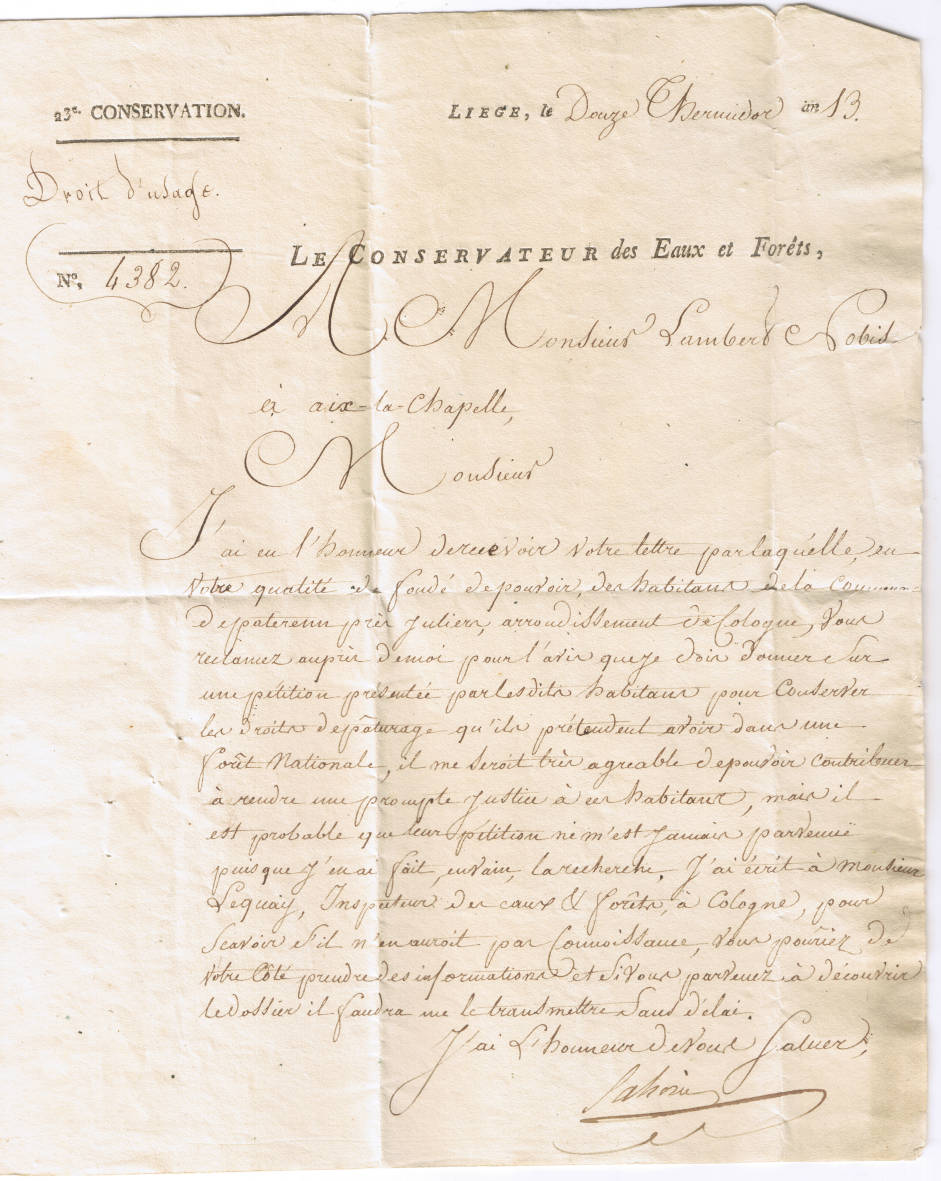 23e. CONSERVATION.
LIEGE, le Douze Thermidor an 13.
Droit d'usage.
No. 4382.
LE CONSERVATEUR des Eaux et Forêts,
A Monsieur Lambert Nobis
à aix-la-Chapelle,
Monsieur
J'ai eu l'honneur de recevoir votre lettre par laquelle, en
votre qualité de fondé de pouvoir, des habitans de la Commune
de paterenn près Juliers, arrondissement de Cologne, vous
réclamez auprès de moi pour l'avis que je dois donner sur
une pétition présentée par lesdits habitans pour Conserver
les droits de pâturage qu'ils prétendent avoir dans une
forêt Nationale, il me seroit très agreable de pouvoir contribuer
à rendre une prompte Justice à ces habitans, mais il
est probable que leur pétition ne m'est Jamais parvenuë
puisque J'en ai fait, envain, la recherche. J'ai écrit à monsieur
Lequay, Inspecteur des eaux & forêts, à Cologne, pour
scavoir s'il n'en auroit pas Connoissance, vous pouriez de
votre Côté prendre des informations et si vous parvenez à découvrir
le dossier il faudra me le transmettre sans délai.
J'ai L'honneur de vous saluer,
Lahorie